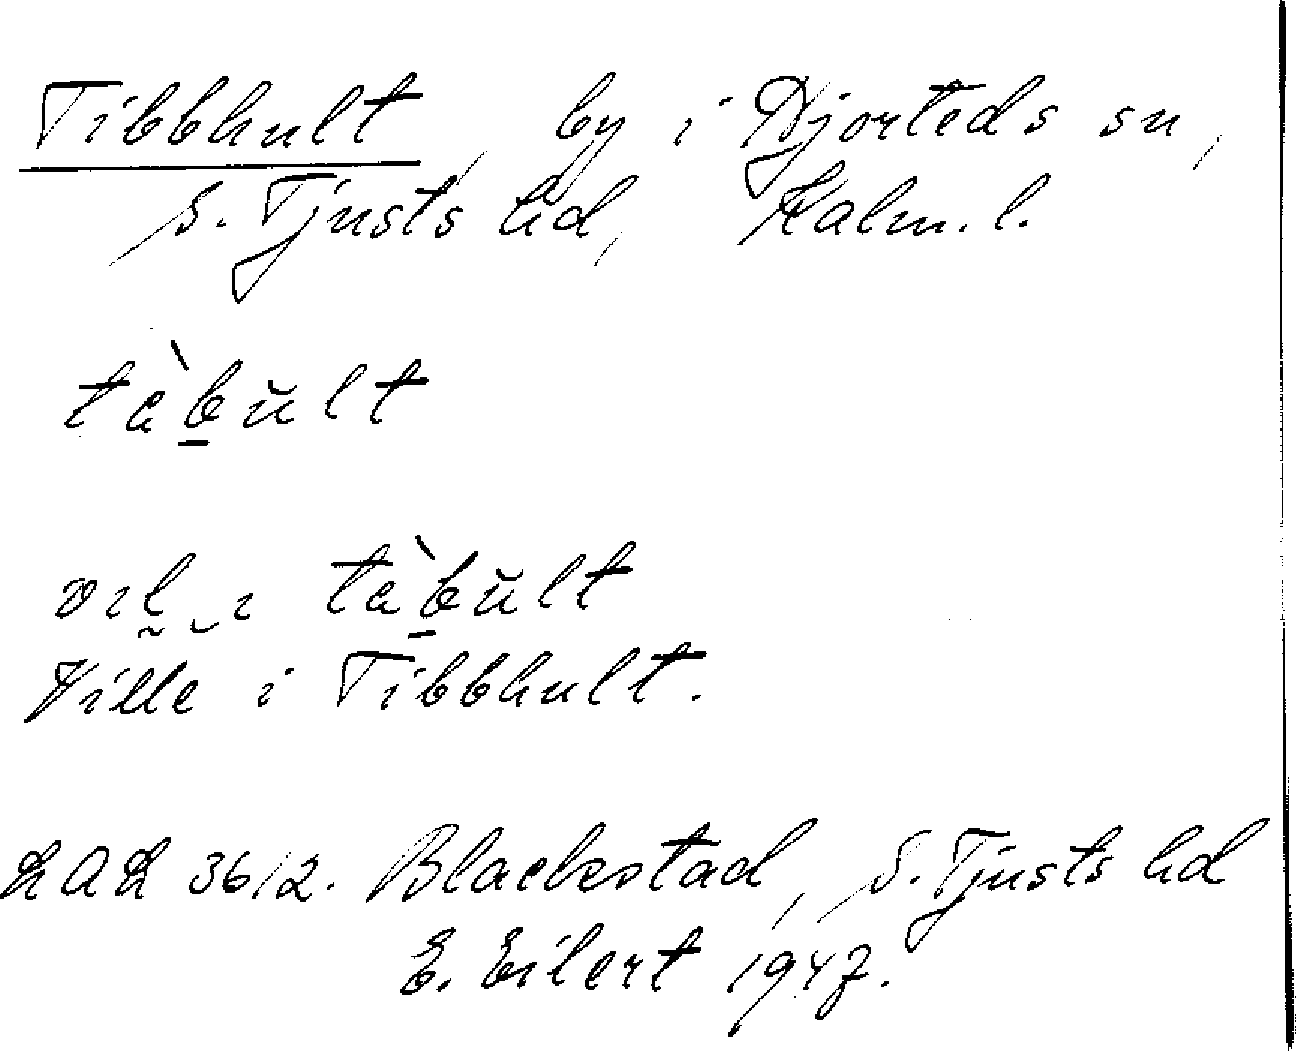 Tibbhult, by i Hjorteds sn,
S. Tjusts hd, Kalm. l.
tèb̲ŭlt
vıl̰ ‿ ı tèb̲ŭlt
Ville i Tibbhult.
Blackstad, S. Tjusts hd
E. Eilert 1947.